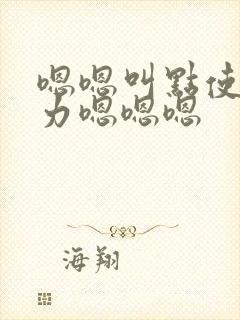 嗯嗯叫點使
力嗯嗯嗯
海翔